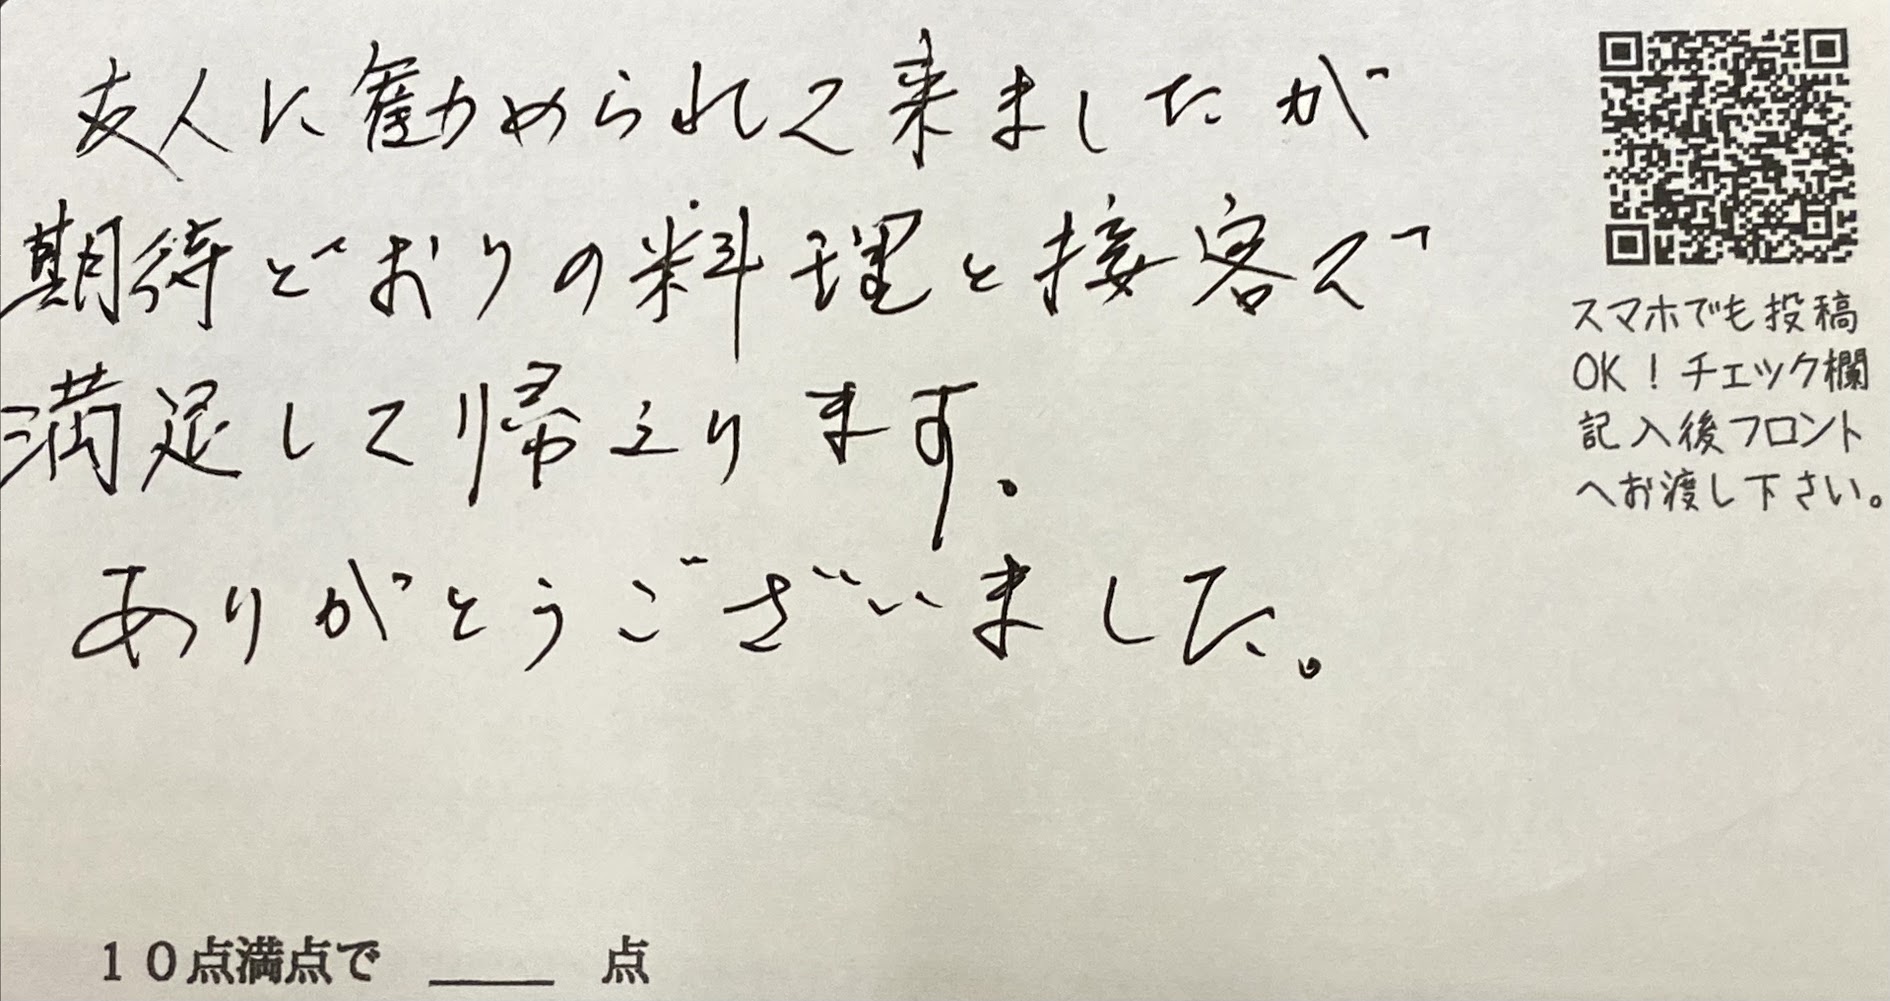 友人に勧められて来ましたが
期待どおりの料理と接客で
満足して帰えります。
ありがとうございました。
スマホでも投稿
OK！チェック欄
記入後フロント
へお渡し下さい。
１０点満点で ＿＿ 点